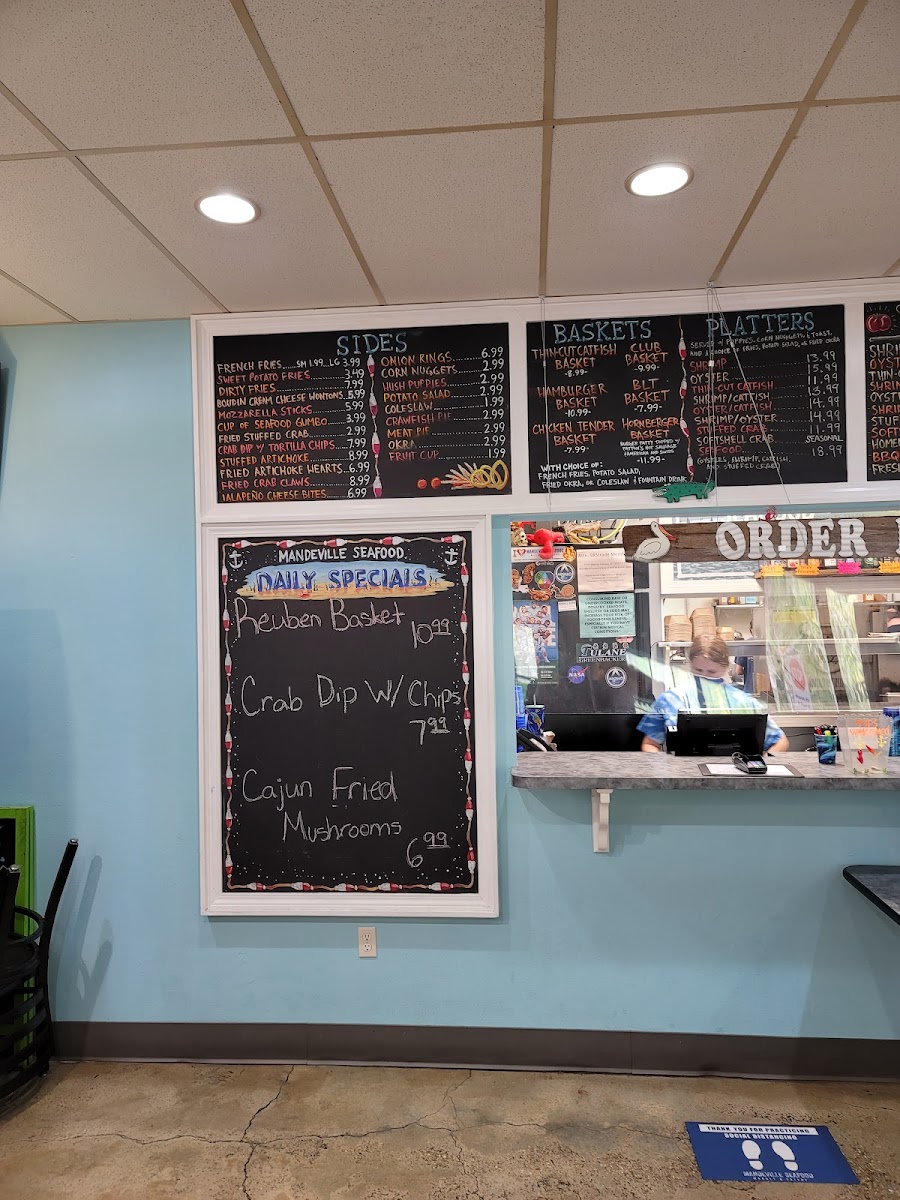 SIDES
FRENCH FRIES.....SM 1.99...LG 3.99
SWEET POTATO FRIES..........3.49
DIRTY FRIES..........7.99
BOUDIN CREAM CHEESE WONTONS..5.99
MOZZARELLA STICKS..........5.99
CUP OF SEAFOOD GUMBO.......3.99
FRIED STUFFED CRAB..........2.99
CRAB DIP W/ TORTILLA CHIPS..7.99
STUFFED ARTICHOKE..........8.99
FRIED ARTICHOKE HEARTS...6.99
FRIED CRAB CLAWS..........8.99
JALAPEÑO CHEESE BITES.....6.99
ONION RINGS..........6.99
CORN NUGGETS..........2.99
HUSH PUPPIES..........2.99
POTATO SALAD..........2.99
COLESLAW..........1.99
CRAWFISH PIE..........2.99
MEAT PIE..........2.99
OKRA..........2.99
FRUIT CUP..........1.99
BASKETS
THIN-CUT CATFISH
BASKET
-8.99-
HAMBURGER
BASKET
-10.99-
CHICKEN TENDER
BASKET
-7.99-
CLUB
BASKET
-9.99-
BLT
BASKET
-7.99-
HORNBERGER
BASKET
-11.99-
WITH CHOICE OF:
FRENCH FRIES, POTATO SALAD,
FRIED OKRA, OR COLESLAW & FOUNTAIN DRINK
PLATTERS
SERVED W/ PUPPIES, CORN NUGGETS, & TOAST,
AND A CHOICE OF FRIES, POTATO SALAD, OR FRIED OKRA
SHRIMP..........13.99
OYSTER..........15.99
THIN-CUT CATFISH..........11.99
SHRIMP/CATFISH..........13.99
OYSTER/CATFISH..........14.99
SHRIMP/OYSTER..........14.99
STUFFED CRAB..........11.99
SOFTSHELL CRAB SEASONAL
SEAFOOD..........18.99
(OYSTERS, SHRIMP, CATFISH,
AND STUFFED CRAB)
MANDEVILLE SEAFOOD
DAILY SPECIALS
Reuben Basket
10.99
Crab Dip W/ Chips
7.99
Cajun Fried
Mushrooms
6.99
ORDER
TULANE
GREENBACKERS
NASA
THANK YOU FOR PRACTICING
SOCIAL DISTANCING
MANDEVILLE SEAFOOD
MARKET & EATERY